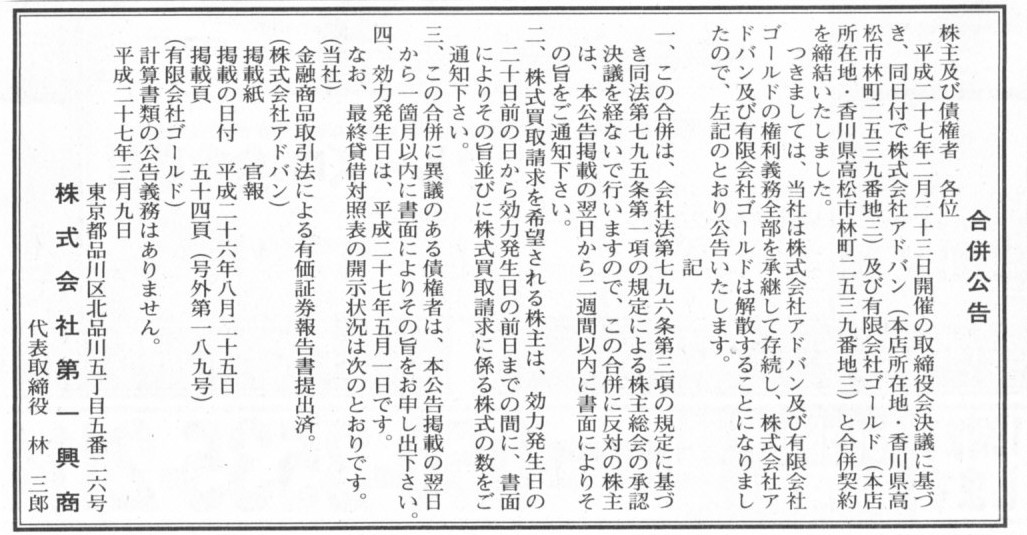 合併公告
株主及び債権者　各位
　平成二十七年二月二十三日開催の取締役会決議に基づ
き、同日付で株式会社アドバン（本店所在地・香川県高
松市林町二五三九番地三）及び有限会社ゴールド（本店
所在地・香川県高松市林町二五三九番地三）と合併契約
を締結いたしました。
　つきましては、当社は株式会社アドバン及び有限会社
ゴールドの権利義務全部を承継して存続し、株式会社ア
ドバン及び有限会社ゴールドは解散することになりまし
たので、左記のとおり公告いたします。
記
一、この合併は、会社法第七九六条第三項の規定に基づ
き同法第七九五条第一項の規定による株主総会の承認
決議を経ないで行いますので、この合併に反対の株主
は、本公告掲載の翌日から二週間以内に書面によりそ
の旨をご通知下さい。
二、株式買取請求を希望される株主は、効力発生日の
二十日前の日から効力発生日の前日までの間に、書面
によりその旨並びに株式買取請求に係る株式の数をご
通知下さい。
三、この合併に異議のある債権者は、本公告掲載の翌日
から一箇月以内に書面によりその旨をお申し出下さい。
四、効力発生日は、平成二十七年五月一日です。
なお、最終貸借対照表の開示状況は次のとおりです。
（当社）
金融商品取引法による有価証券報告書提出済。
（株式会社アドバン）
掲載紙　官報
掲載の日付　平成二十六年八月二十五日
掲載頁　五十四頁（号外第一八九号）
（有限会社ゴールド）
計算書類の公告義務はありません。
平成二十七年三月九日
東京都品川区北品川五丁目五番二六号
株式会社第一興商
代表取締役　林　三郎